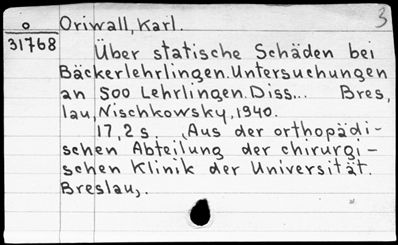 3
o Oriwall, Karl.
31768
Über statische Schäden bei
Bäckerlehrlingen. Untersuchungen
an 500 Lehrlingen. Diss... Bres,
lau, Nischkowsky, 1940.
17, 2 s. Aus der orthopädi-
schen Abteilung der chirurgi-
schen Klinik der Universität.
Breslau,.